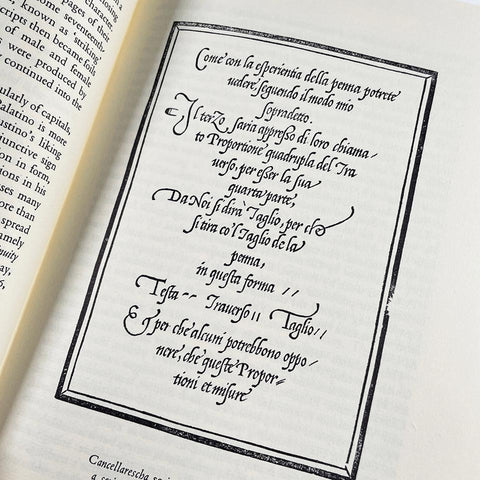 pages of their
character
come seventeenth,
known as 'striking'
scripts then became foils
of male and female
were produced by
continued into the
ularly of capitals,
Palatino is more
ustino's liking
junctive sign
tion in form,
tions in his
ses many
ore than
spread
amely
nuity
ay,
6,
Come con la esperientia della penna potrete
uedere, seguendo il modo mio
sopradetto.
Il terzo saria appresso di loro chiama/
to Proportione quadrupla del Tra
uerso, per esser la sua
quarta parte,
Da Noi si dirà Taglio, per che
si tira co'l Taglio de la
penna,
in questa forma //
Testa -- Trauerso || Taglio//
E per che alcuni potrebbono oppo/
nere, che queste Propor=
tioni et misure
Cancellarescha
a